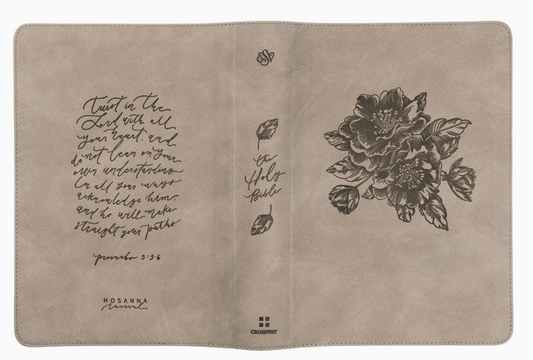 Trust in the
Lord with all
your heart, and
do not lean on your
own understanding
In all your ways
acknowledge him,
and he will make
straight your paths
proverbs 3:5-6
HOSANNA
Revival
ESV
the
Holy
Bible
CROSSWAY